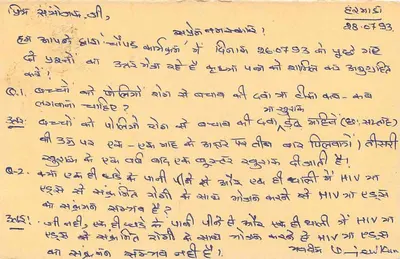 प्रिय संयोजक जी, हरमाडा
सप्रेम नमस्कार! 28.07.93
हम आपके द्वारा चौपड़ कार्यक्रम में दिनांक 26.07.93 को पुछे गये
दो प्रश्नों का उत्तर भेज रहे हैं कृपया पत्र को शामिल कर अनुग्रहित
करें!
Q.1. बच्चों को पोलियो रोग से बचाव की दवा या टीका कब-कब
लगवाना चाहिए?
उत्तर: बच्चों को पोलियो रोग से बचाव की दवा या खुराक डेढ़ माह (छः सप्ताह)
की उम्र पर एक-एक माह के अन्तर पर तीन बार पिलवायें। तीसरी
खुराक के एक वर्ष बाद एक बुस्टर खुराक दी जाती है!
Q-2. क्या एक ही घड़े के पानी पीने से और एक ही थाली में HIV या
एड्स से संक्रमित रोगी के साथ भोजन करने से HIV या एड्स
का संक्रमण सम्भव है?
उत्तर: जी नहीं, एक ही घड़े के पानी पीने से और एक ही थाली में HIV या
एड्स से संक्रमित रोगी के साथ भोजन करने से HIV या एड्स
का संक्रमण सम्भव नहीं है।